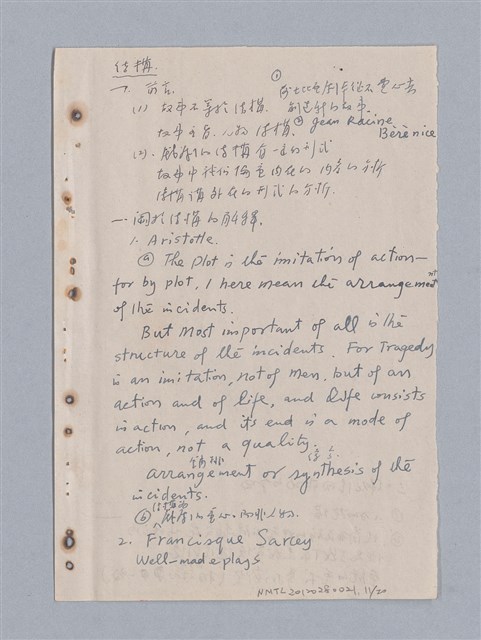 结構.
一. 前言
(1) 故事不等於结構.
① 莎士比亞創作從不費心去
創造新的故事.
② Jean Racine
Bérènice
(2). 戲劇的结構有一定的形式
一. 関於结構的解釋.
1. Aristotle.
ⓐ The plot is the imitation of action—
for by plot, I here mean the arrangement
of the incidents.
But most important of all is the
structure of the incidents. For Tragedy
is an imitation, not of men, but of an
action and of life, and life consists
in action, and its end is a mode of
action, not a quality.
arrangement or synthesis of the
incidents.
ⓑ 结構為戲劇的重心.而非人物.
2. Francisque Sarcey
Well-made plays
NMTL20120280021, 11/20